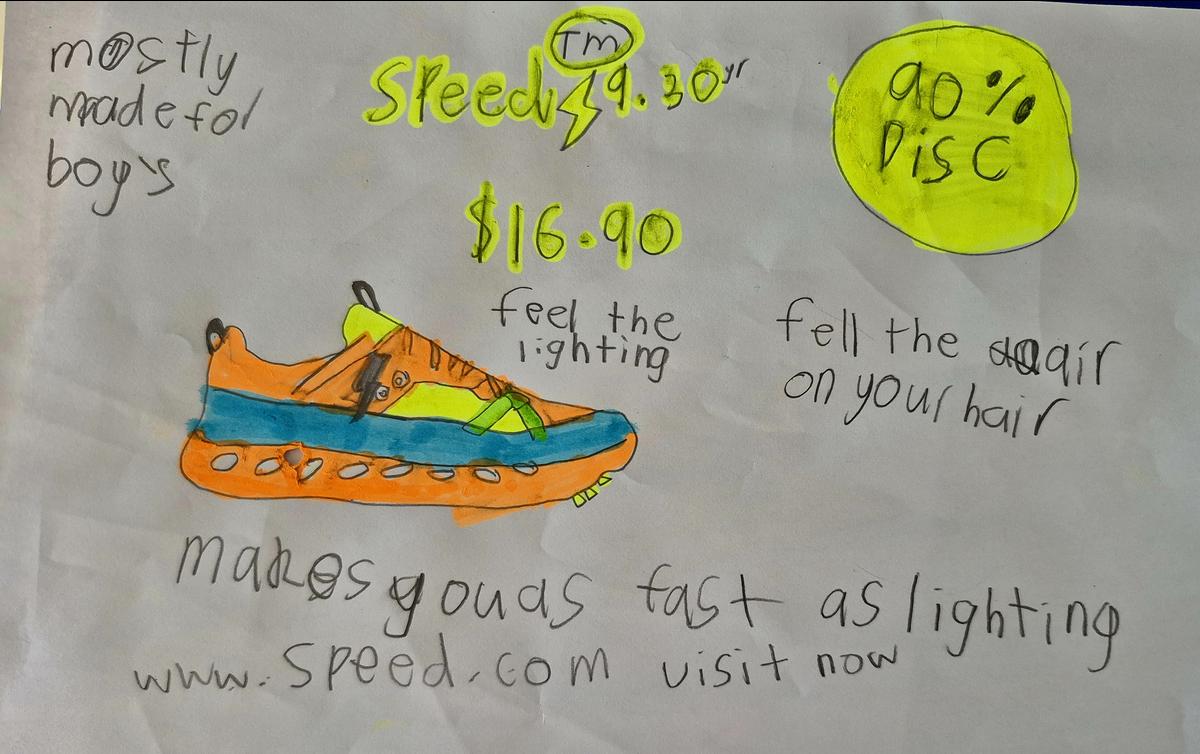 mostly
made for
boy's
TM
Speed⚡9.30yr
90%
DiSC
$16.90
feel the
lighting
fell the air
on your hair
makes youas fast as lighting
www.speed.com visit now